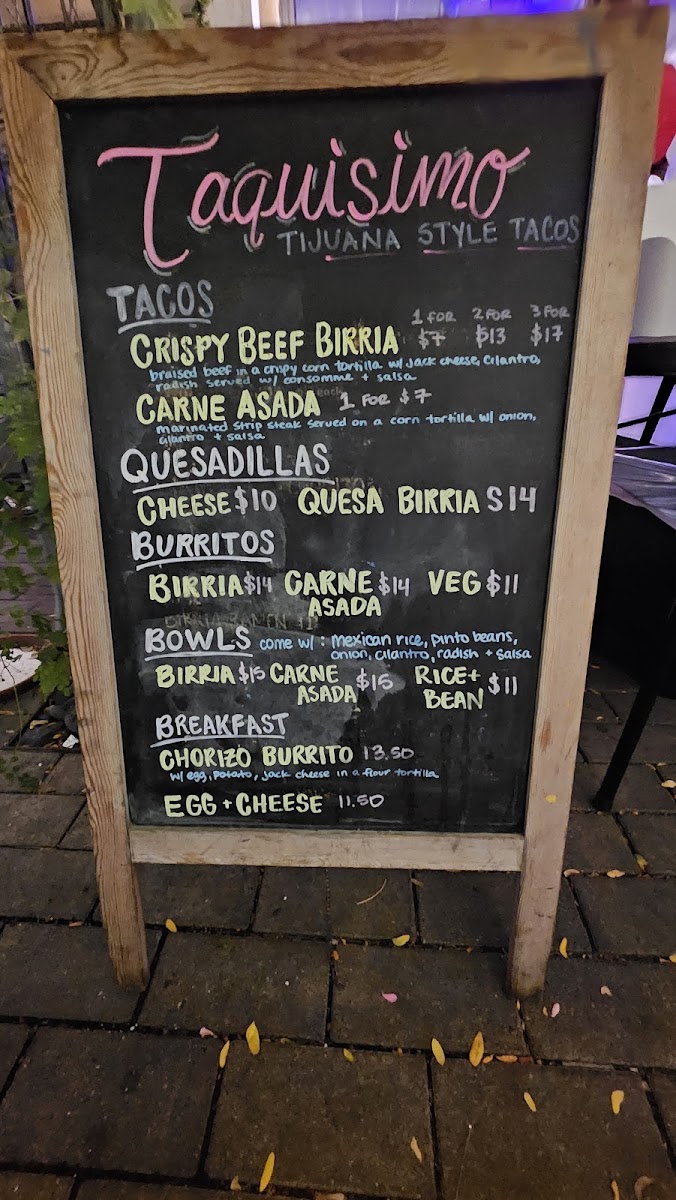 Taquisimo
TIJUANA STYLE TACOS
TACOS
1 FOR 2 FOR 3 FOR
CRISPY BEEF BIRRIA $7 $13 $17
braised beef in a crispy corn tortilla w/ Jack cheese, cilantro,
radish served w/ consomme + salsa
CARNE ASADA 1 FOR $7
marinated strip steak served on a corn tortilla w/ onion,
cilantro + salsa
QUESADILLAS
CHEESE $10 QUESA BIRRIA $14
BURRITOS
BIRRIA $14 CARNE ASADA $14 VEG $11
BIRRIA RAMEN
BOWLS come w/ : mexican rice, pinto beans,
onion, cilantro, radish + salsa
BIRRIA $15 CARNE ASADA $15 RICE + BEAN $11
BREAKFAST
CHORIZO BURRITO 13.50
w/ egg, potato, jack cheese in a flour tortilla
EGG + CHEESE 11.50